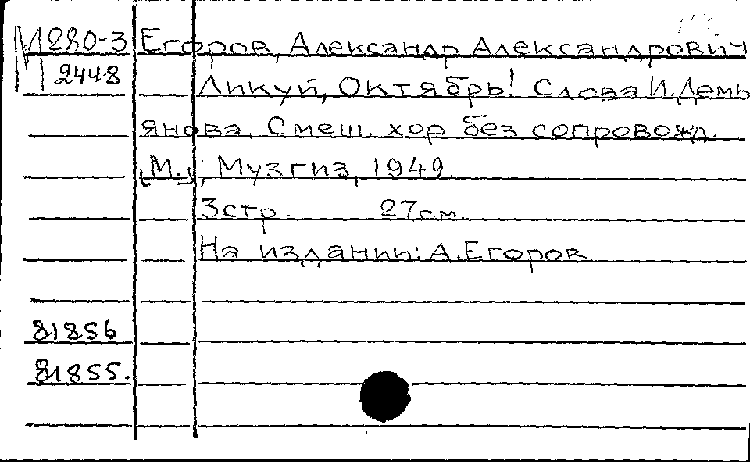 М280-3 Егоров, Александр Александрович
2448 Ликуй, Октябрь! Слова И. Демь
янова. Смеш. хор без сопровожд.
[М.], Музгиз, 1949.
3 стр. 27 см.
На издании: А. Егоров
81856
81855.